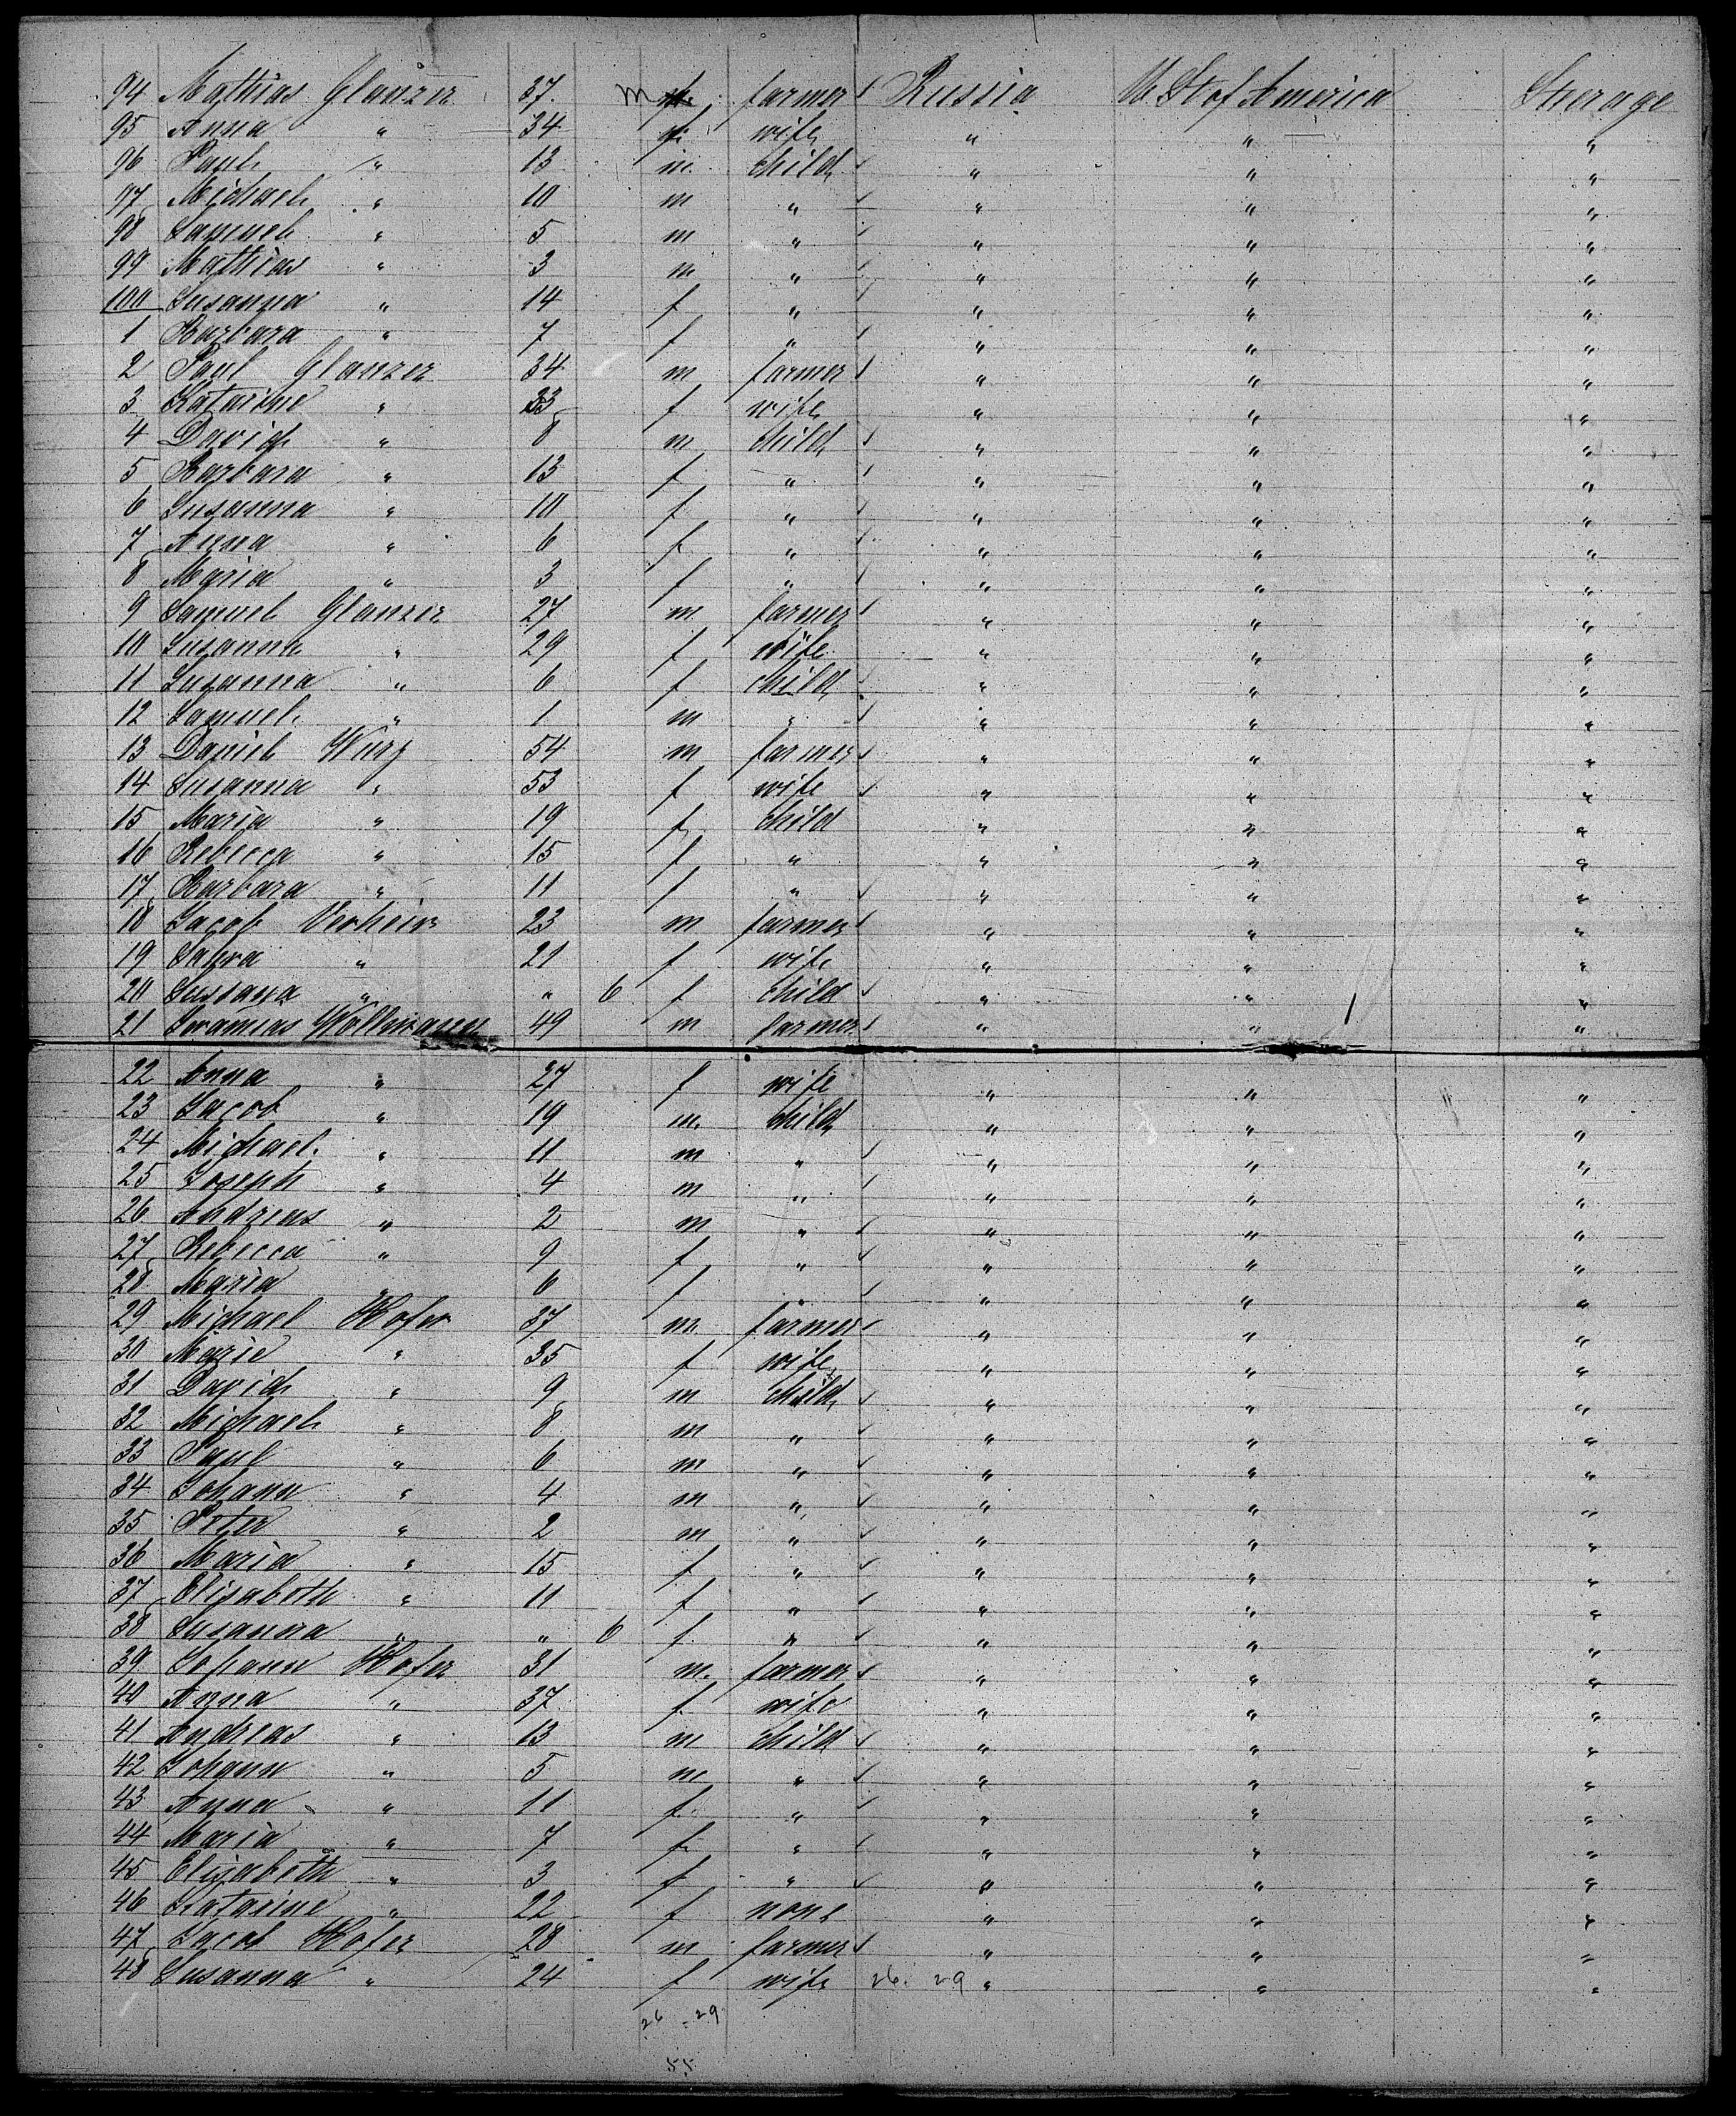 94 Mathias Glanzer 37. m farmer Russia U. St of America Steerage
95 Anna " 34 f wife " " "
96 Paul " 13 m. child " " "
97 Michael " 10 m " " " "
98 Samuel " 5 m " " " "
99 Mathias " 3 m " " " "
100 Susanna " 14 f " " " "
1 Barbara " 7 f " " " "
2 Paul Glanzer 34 m farmer " " "
3 Katarine " 33 f wife " " "
4 David " 8 m child " " "
5 Barbara " 13 f " " " "
6 Susanna " 10 f " " " "
7 Anna " 6 f " " " "
8 Maria " 3 f " " " "
9 Samuel Glanzer 27 m farmer " " "
10 Susanna " 29 f wife " " "
11 Susanna " 6 f child " " "
12 Samuel " 1 m " " " "
13 Daniel Wurz 54 m farmer " " "
14 Susanna " 53 f wife " " "
15 Maria " 19 f child " " "
16 Rebecca " 15 f " " " "
17 Barbara " 11 f " " " "
18 Jacob 23 m farmer " " "
19 " 21 f wife " " "
20 Susana " " 6 f child " " "
21 Wollmann 49 m farmer " " "
22 Anna " 27 f wife " " "
23 Jacob " 19 m. child " " "
24 Michael " 11 m " " " "
25 Joseph " 4 m " " " "
26 Andreas " 2 m " " " "
27 Rebecca " 9 f " " " "
28 Maria " 6 f " " " "
29 Michael Hofer 37 m farmer " " "
30 Marie " 35 f wife " " "
31 David " 9 m child " " "
32 Michael " 8 m " " " "
33 Paul " 6 m " " " "
34 Johann " 4 m " " " "
35 Peter " 2 m " " " "
36 Maria " 15 f " " " "
37 Elisabeth " 11 f " " " "
38 Susanna " " 6 f " " " "
39 Johann Hofer 31 m. farmer " " "
40 Anna " 37 f wife " " "
41 Andreas " 13 m child " " "
42 Johann " 5 m " " " "
43 Anna " 11 f " " " "
44 Maria " 7 f " " " "
45 Elisabeth " 3 f " " " "
46 Katarine " 22 f none " " "
47 Jacob Hofer 28 m farmer " " "
48 Susanna " 24 f wife 26. 29 " " "
26 - 29
55